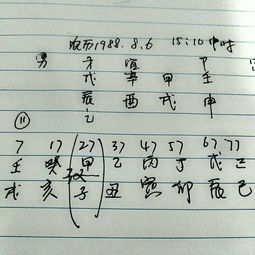 农历1988.8.6 15:10中时
男 寅 甲 壬
戊 辛
辰 酉 戌 申
乙
11
7 17 27 37 47 57 67 77
壬 癸 甲 乙 丙 丁 戊 己
戌 亥 子 丑 寅 卯 辰 巳